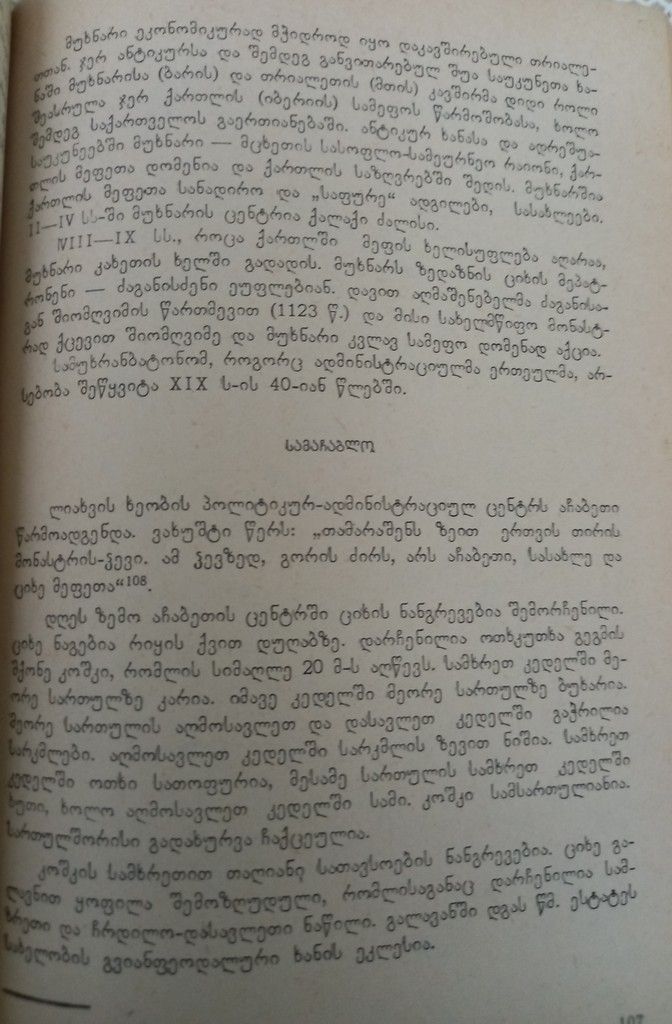 მუხნარი ეკონომიკურად მჭიდროდ იყო დაკავშირებული თრიალე-
თთან. ჯერ ანტიკურსა და შემდეგ განვითარებულ შუა საუკუნეთა ხა-
ნაში მუხნარისა (ბარის) და თრიალეთის (მთის) კავშირმა დიდი როლი
შეასრულა ჯერ ქართლის (იბერიის) სამეფოს წარმოშობასა, ხოლო
შემდეგ საქართველოს გაერთიანებაში. ანტიკურ ხანასა და ადრეშუა-
საუკუნეებში მუხნარი — მცხეთის სასოფლო-სამეურნეო რაიონი, ქარ-
თლის მეფეთა დომენია და ქართლის საზღვრებში შედის. მუხნარშია
ქართლის მეფეთა სანადირო და „საფურე“ ადგილები, სასახლეები.
II—IV სს-ში მუხნარის ცენტრია ქალაქი ძალისი.
VIII—IX სს., როცა ქართლში მეფის ხელისუფლება აღარაა,
მუხნარი კახეთის ხელში გადადის. მუხნარს ზედაზნის ციხის მეპატ-
რონენი — ძაგანისძენი ეუფლებიან. დავით აღმაშენებელმა ძაგანისა-
გან შიომღვიმის წართმევით (1123 წ.) და მისი სახელმწიფო მონასტ-
რად ქცევით შიომღვიმე და მუხნარი კვლავ სამეფო დომენად აქცია.
სამუხრანბატონომ, როგორც ადმინისტრაციულმა ერთეულმა, არ-
სებობა შეწყვიტა XIX ს-ის 40-იან წლებში.
სამაჩაბლო
ლიახვის ხეობის პოლიტიკურ-ადმინისტრაციულ ცენტრს აჩაბეთი
წარმოადგენდა. ვახუშტი წერს: „თამარაშენს ზეით ერთვის თირის
მონასტრის-ჴევი. ამ ჴევზედ, გორის ძირს, არს აჩაბეთი, სასახლე და
ციხე მეფეთა“108.
დღეს ზემო აჩაბეთის ცენტრში ციხის ნანგრევებია შემორჩენილი.
ციხე ნაგებია რიყის ქვით დუღაბზე. დარჩენილია ოთხკუთხა გეგმის
მქონე კოშკი, რომლის სიმაღლე 20 მ-ს აღწევს. სამხრეთ კედელში მე-
ორე სართულზე კარია. იმავე კედელში მეორე სართულზე ბუხარია.
მეორე სართულის აღმოსავლეთ და დასავლეთ კედელში გაჭრილია
სარკმლები. აღმოსავლეთ კედელში სარკმლის ზევით ნიშია. სამხრეთ
კედელში ოთხი სათოფურია, მესამე სართულის სამხრეთ კედელში
ხუთი, ხოლო აღმოსავლეთ კედელში სამი. კოშკი სამსართულიანია.
სართულშორისი გადახურვა ჩაქცეულია.
კოშკის სამხრეთით თაღიანე სათავსოების ნანგრევებია. ციხე გა-
ლავნით ყოფილა შემოზღუდული, რომლისაგანაც დარჩენილია სამ-
ხრეთი და ჩრდილო-დასავლეთი ნაწილი. გალავანში დგას წმ. ესტატეს
სახელობის გვიანფეოდალური ხანის ეკლესია.
107